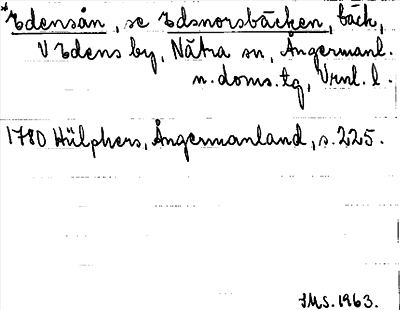 *Edensån, se Edsnorsbäcken, bäck,
V Edens by, Nätra sn, Ångermanl.
n. doms. tg, Vrnl. l.
1780 Hülphers, Ångermanland, s. 225.
SMS. 1963.